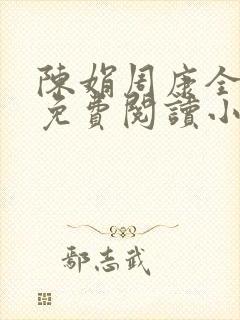 陳娟周康全
免費閱讀小
鄢志武